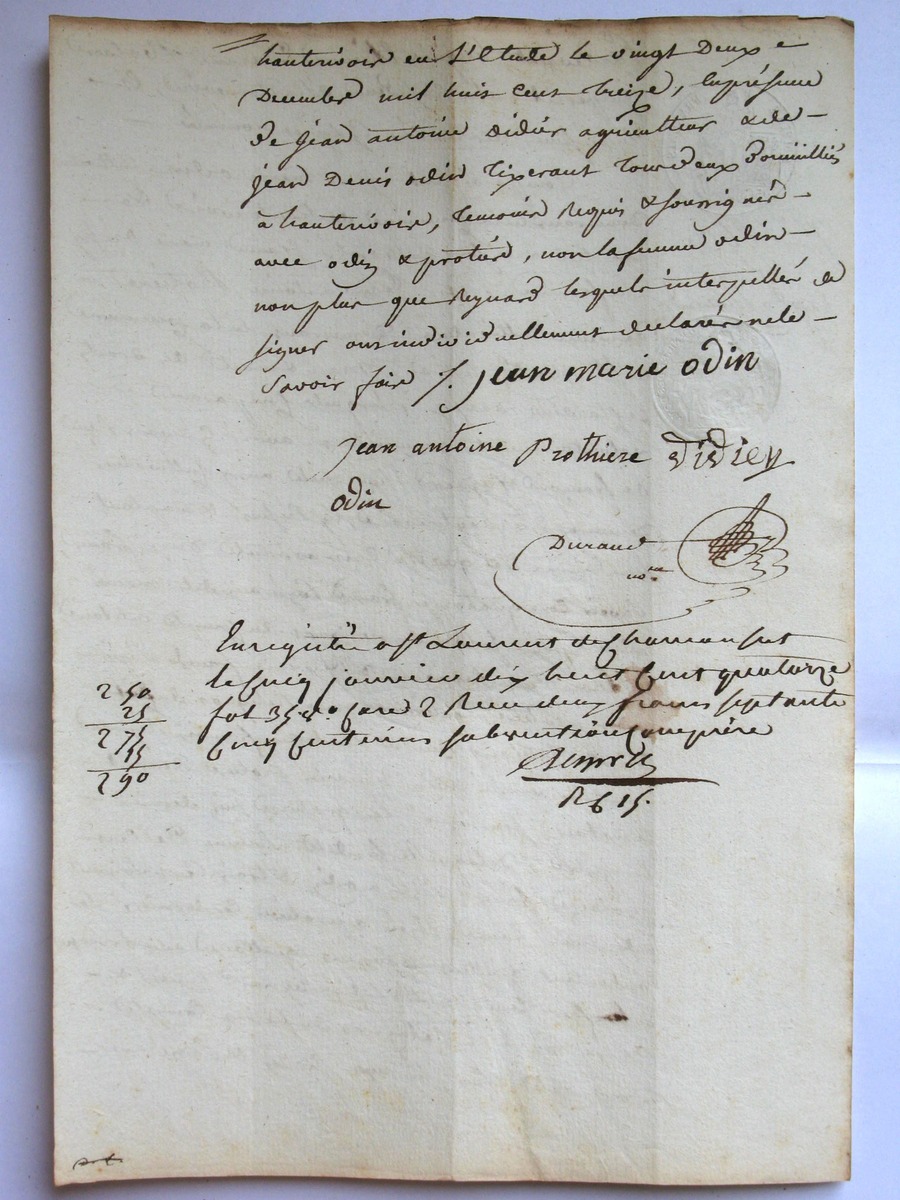 hauterivoire en l'Etude le vingt Deux
Decembre mil huit cent treize, En présence
De jean antoine didier agriculteur & de
jean Denis odin tixerant tous deux Domiciliés
à hauterivoire, temoins Requis & soussignés
avec odin & protière, non la femme odin
non plus que Reynard lesquels interpellés de
signer ont individuellement declarés ne le
Savoir faire /. jean marie odin
jean antoine Prothiere didiey
odin
Durand
nore
Enregistré a St Laurent de Chamousset
le Cinq janvier dix huit Cent quatorze
fol 35 vo Case 2 Recu deux francs septante
Cinq Centimes subvention Comprise
2 50
25
2 75
15
2 90
R 6 15.